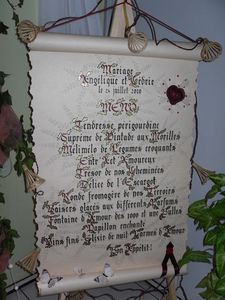 Mariage
Angélique et Cédric
le 24 juillet 2010
MENU
Tendresse périgourdine
Suprême de Pintade aux Morilles
Mélimélo de Légumes croquants
Entr'Act Amoureux
Trésor de nos Cheminées
Délice de l'Escargot
Ronde fromagère de nos Terroirs
Baisers glacés aux différents Parfums
Fontaine d'Amour des 1001 et une Bulles
Papillon enchanté
Vins fins Elixir de nuit Larmes d'Amour
Bon Appétit!